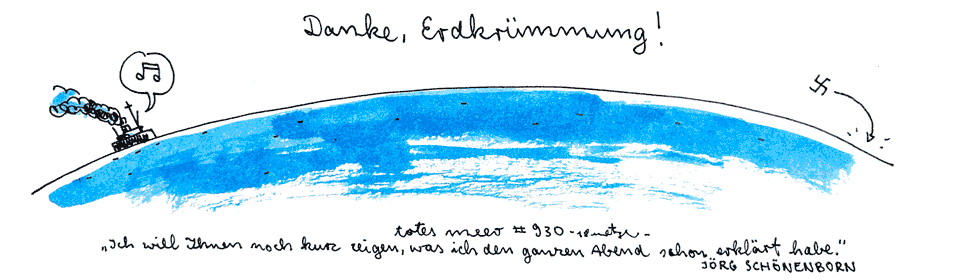 Danke, Erdkrümmung!
totes meer #930
„Ich will Ihnen noch kurz zeigen, was ich den ganzen Abend schon erklärt habe."
JÖRG SCHÖNENBORN